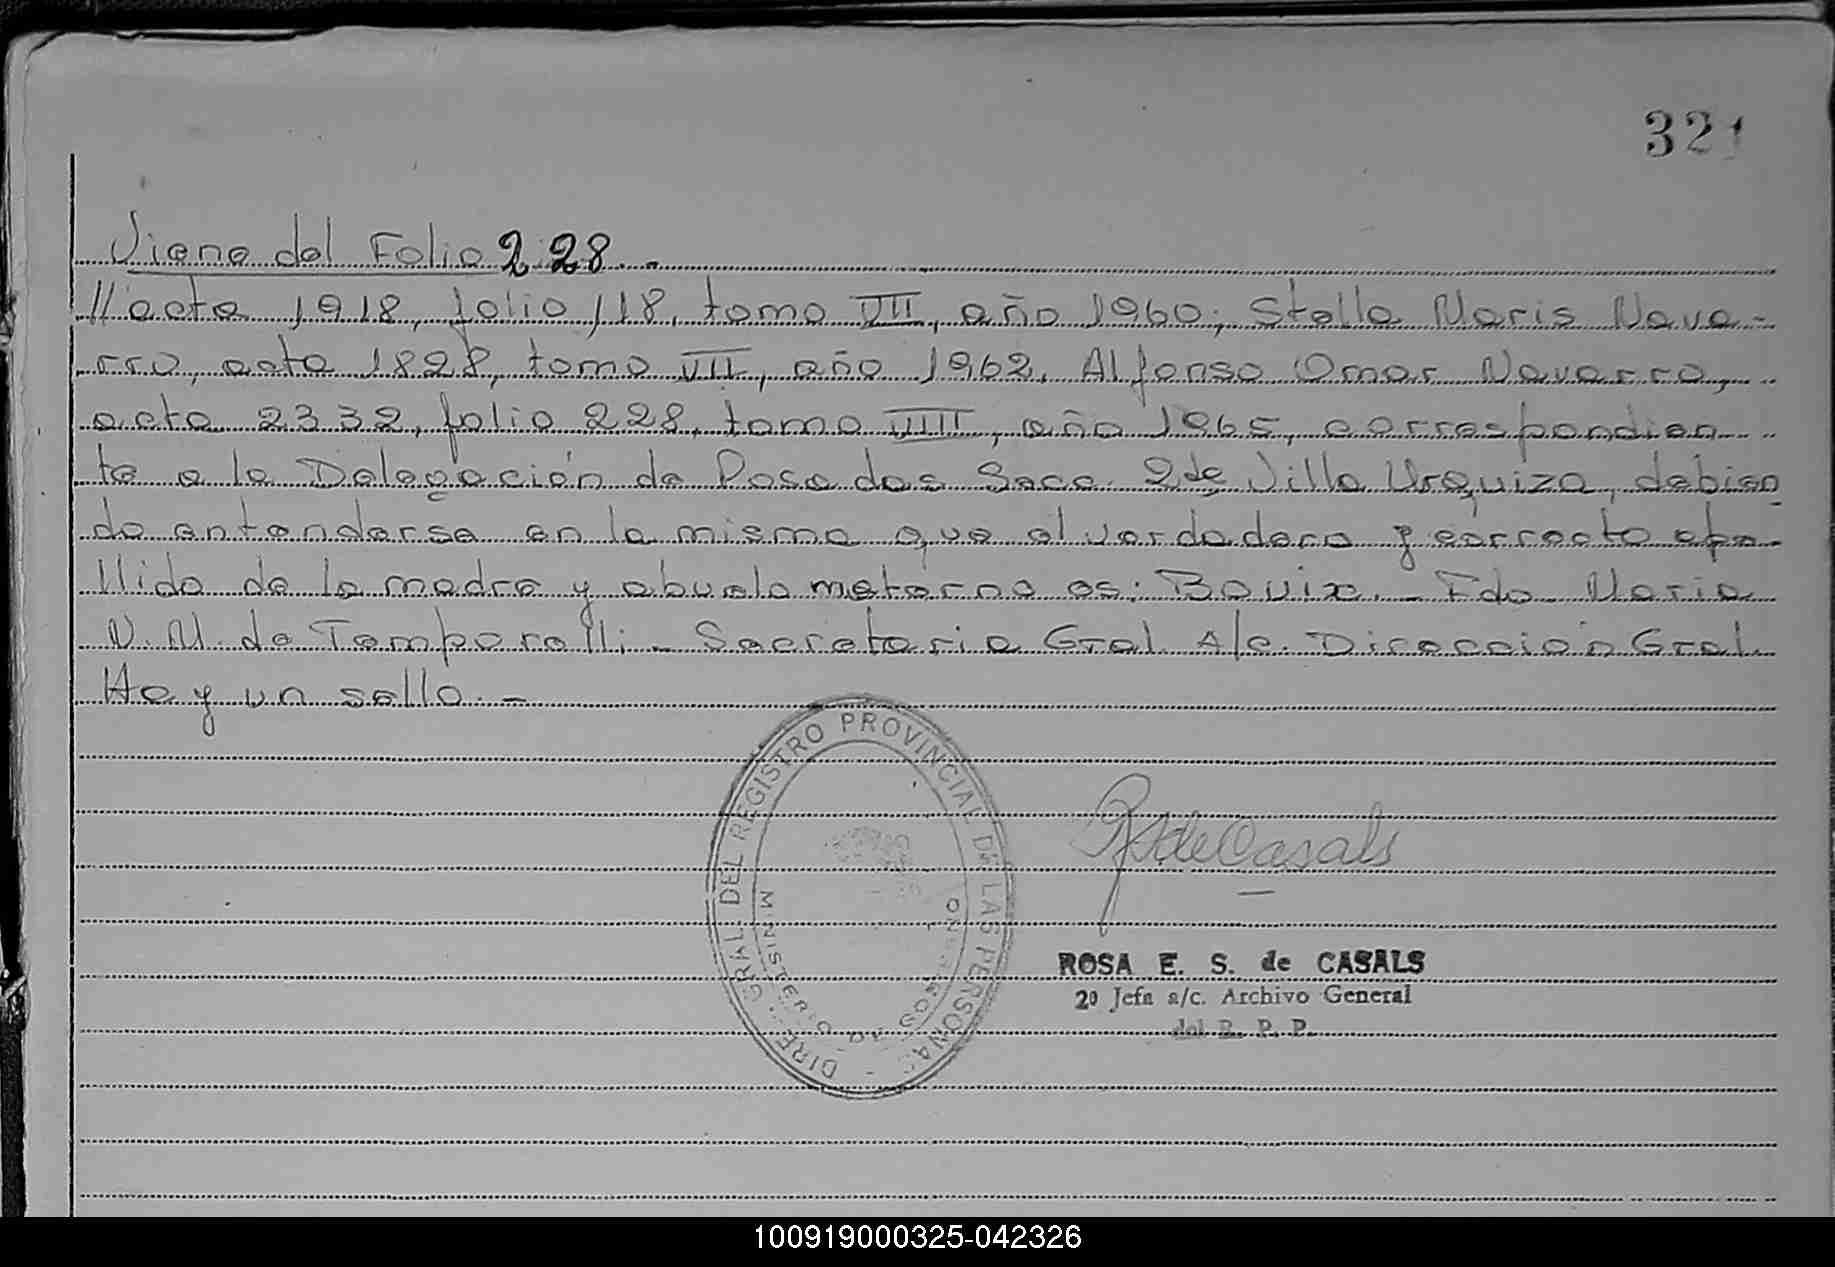 321
Viene del Folio 228.-
//acta 1918, folio 118, tomo VII, año 1960; Stella Maris Nava-
rro, acta 1828, tomo VII, año 1962, Alfonso Omar Navarro,-
acta 2332, folio 228, tomo VIII, año 1965, correspondien-
te a la Delegación de Posadas Secc. 2de Villa Urquiza, debien
do entenderse en la misma que el verdadero y correcto ape-
llido de la madre y abuela materna es: Bouix.- Fdo. Maria
N.M. de Temporelli.- Secretaria Gral A/c. Dirección Gral.
Hay un sello.-
DIRE. GRAL. DEL REGISTRO PROVINCIAL DE LAS PERSONAS
MINISTERIO DE GOB
R S de Casals
ROSA E. S. de CASALS
2º Jefa a/c. Archivo General
del R. P. P.
100919000325-042326